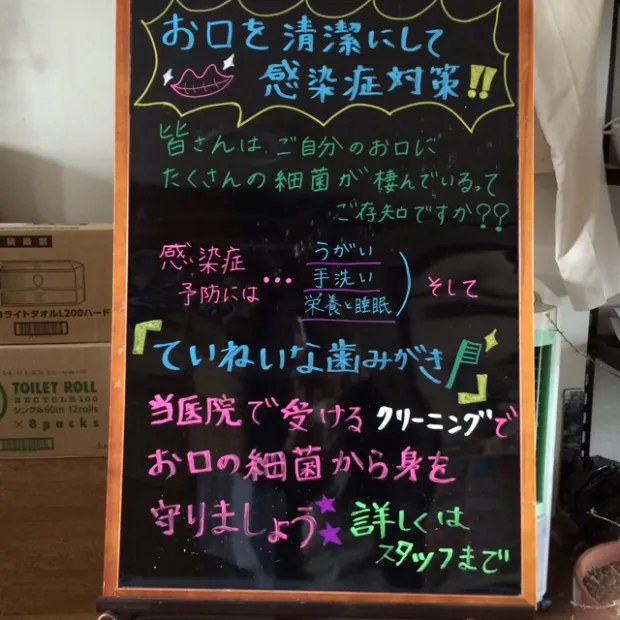 お口を清潔にして
感染症対策!!
皆さんは、ご自分のお口に
たくさんの細菌が棲んでいるって
ご存知ですか??
感染症
予防には…
うがい
手洗い
栄養と睡眠
そして
『ていねいな歯みがき』
当医院で受けるクリーニングで
お口の細菌から身を
守りましょう
詳しくは
スタッフまで
ライトタオルL200ハード
TOILET ROLL
RECYCLE100
シングル60m 12rolls
× 8pucks